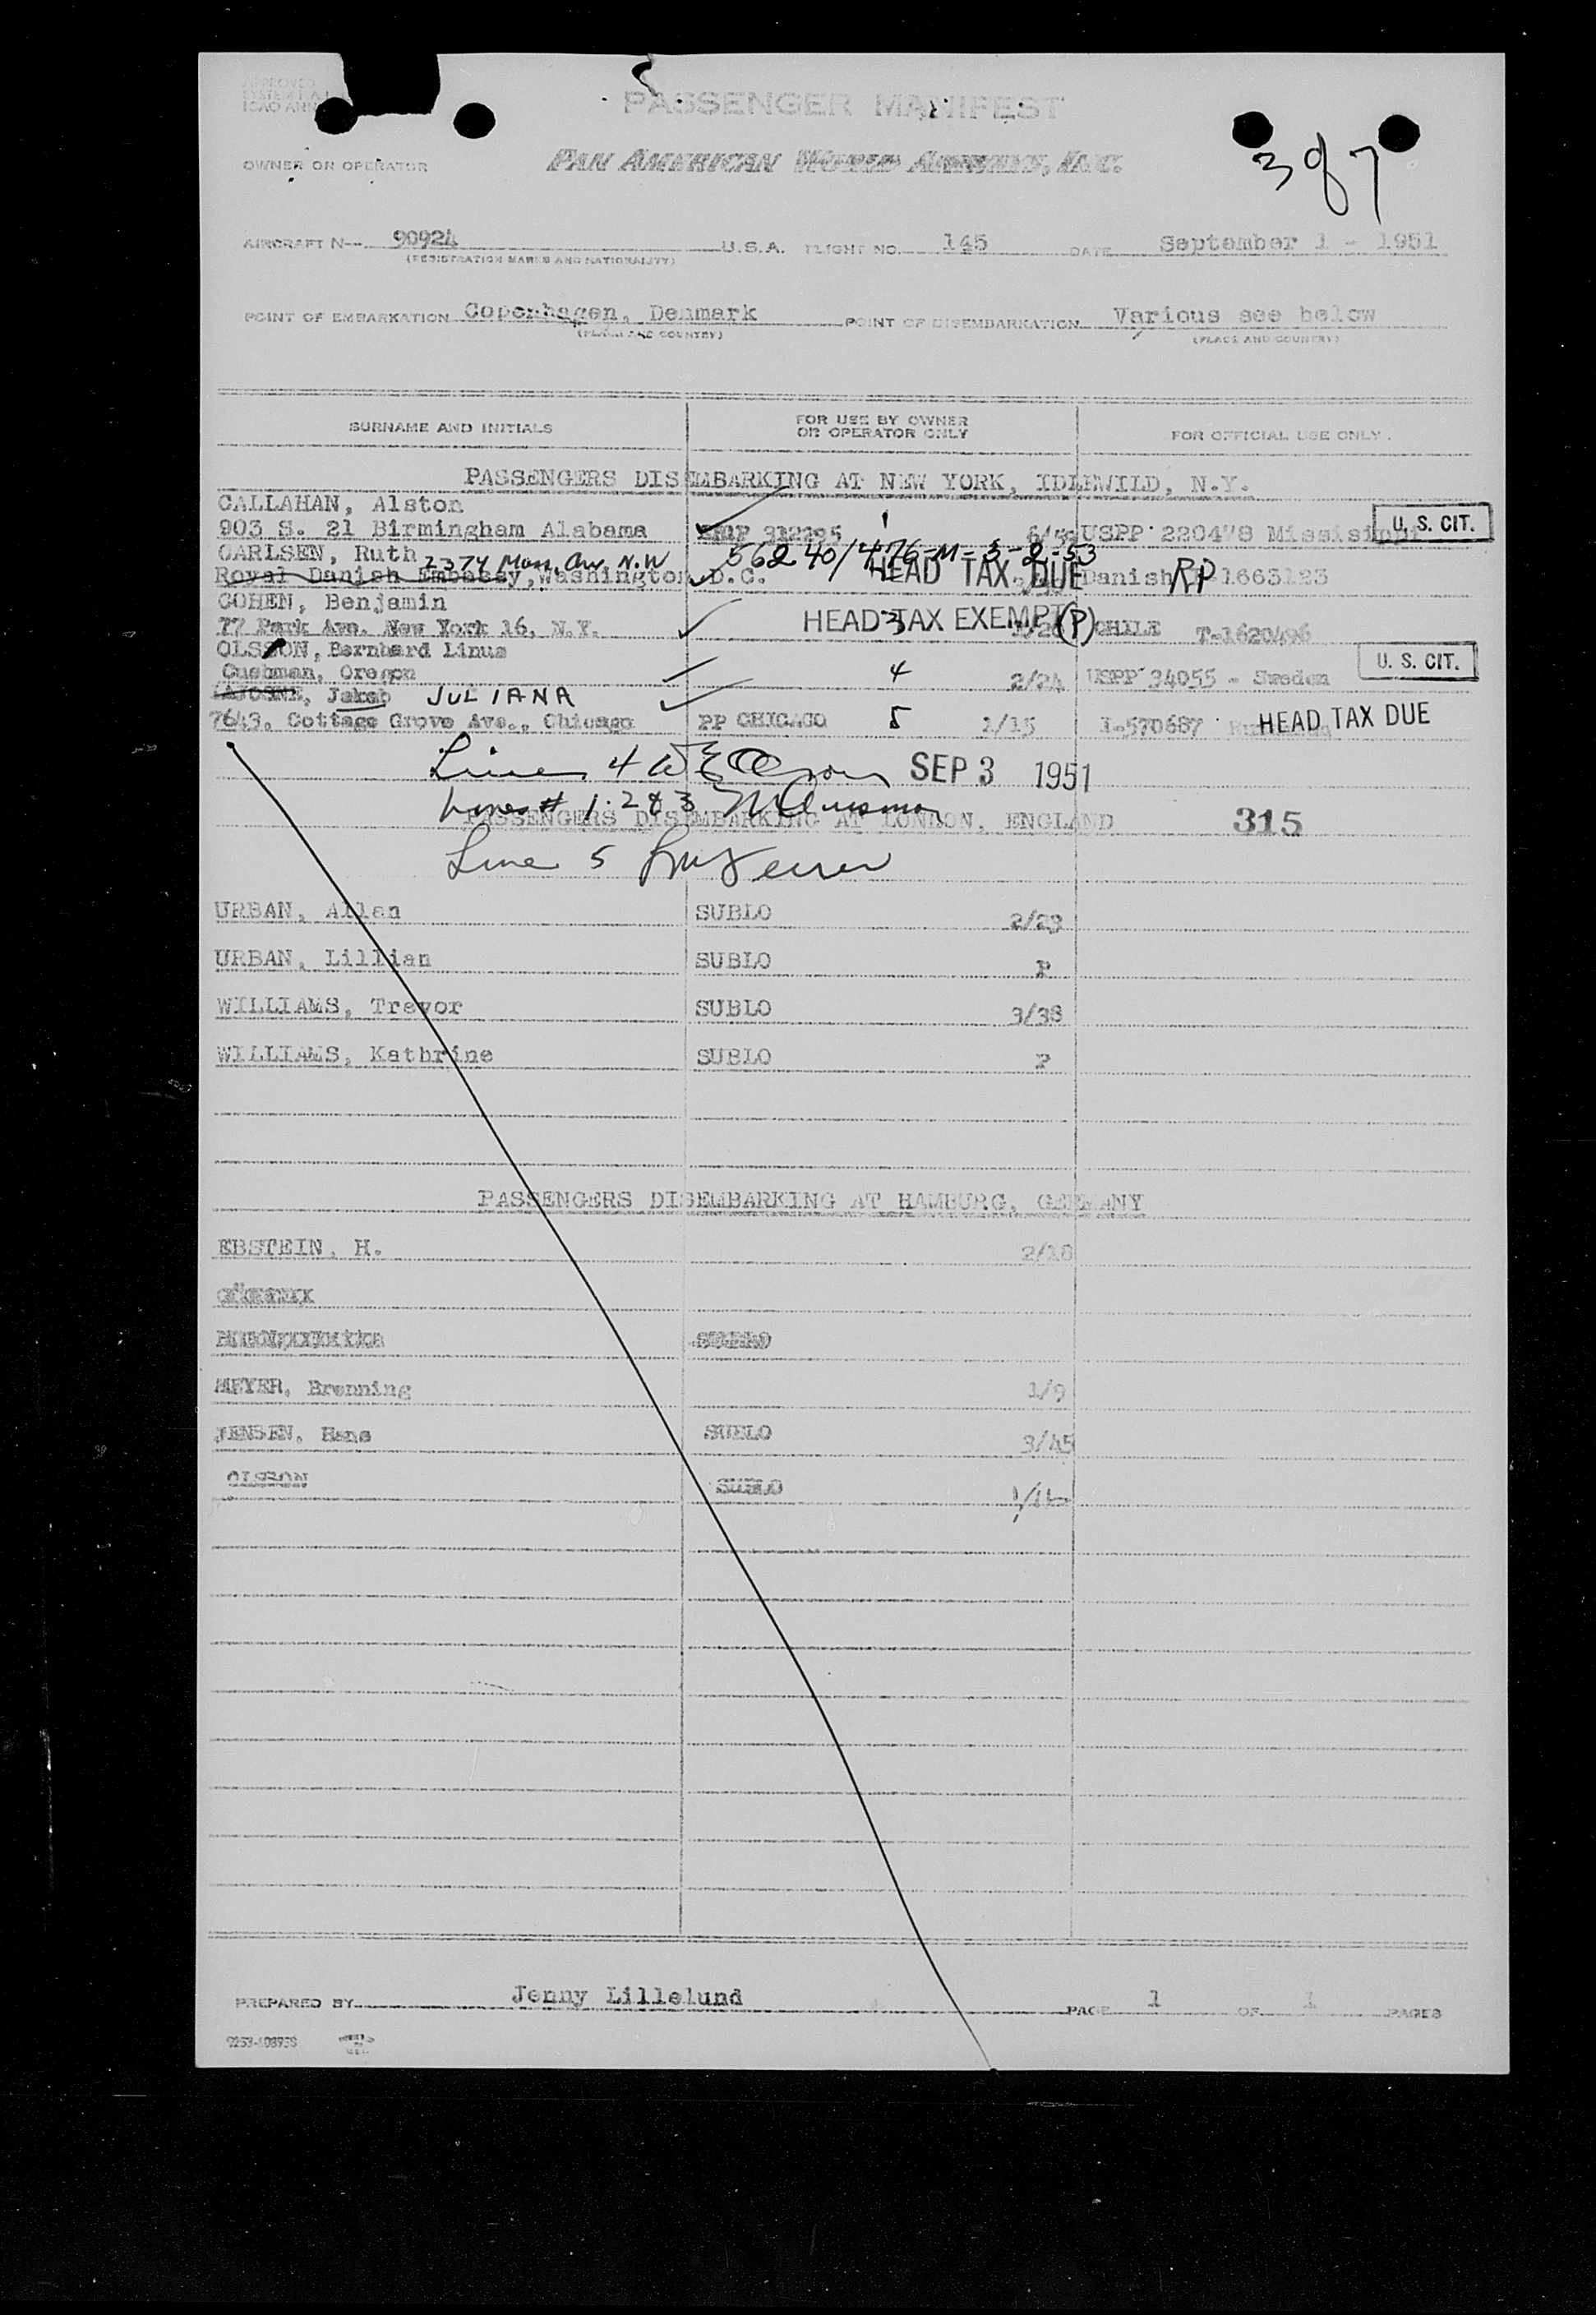 APPROVED
SYSTEM P.A.
ICAO ANN
PASSENGER MANIFEST
OWNER OR OPERATOR PAN AMERICAN WORLD AIRWAYS, INC.
3 of 7
AIRCRAFT N-- 90924 U.S.A. FLIGHT NO. 145 DATE September 1 - 1951
(REGISTRATION MARKS AND NATIONALITY)
POINT OF EMBARKATION Copenhagen, Denmark POINT OF DISEMBARKATION Various see below
(PLACE AND COUNTRY) (PLACE AND COUNTRY)
SURNAME AND INITIALS FOR USE BY OWNER OR OPERATOR ONLY FOR OFFICIAL USE ONLY.
PASSENGERS DISEMBARKING AT NEW YORK, IDLEWILD, N.Y.
CALLAHAN, Alston
903 S. 21 Birmingham Alabama 312295 1 USPP 220478 Missisippi U.S. CIT.
CARLSEN, Ruth 2374 Mass. Ave. N.W 56240/476-M-3-2-53
Royal Danish Embassy, Washington D.C. HEAD TAX DUE Danish RP 1663123
COHEN, Benjamin
77 Park Ave. New York 16, N.Y. HEAD TAX EXEMPT (P) 3 CHILE T-1620496
OLSSON, Bernhard Linus
Cushman, Oregon 4 2/24 USPP 34055 - Sweden U.S. CIT.
Jakab JULIANA
7643, Cottage Grove Ave., Chicago PP CHICAGO 5 1/15 I-570687 HEAD TAX DUE
Lines 4 SEP 3 1951
Lines # 1.2 & 3
PASSENGERS DISEMBARKING AT LONDON, ENGLAND 315
Line 5
URBAN, Allan SUBLO 2/23
URBAN, Lillian SUBLO P
WILLIAMS, Trevor SUBLO 3/38
WILLIAMS, Kathrine SUBLO P
PASSENGERS DISEMBARKING AT HAMBURG, GERMANY
EBSTEIN, H. 2/18
MEYER, Brenning 1/9
JENSEN, Hans SUBLO 3/45
OLSSON SUBLO
PREPARED BY Jenny Lillelund PAGE 1 OF 1 PAGES